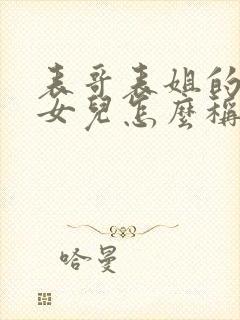 表哥表姐的
女兒怎麼稱
哈曼